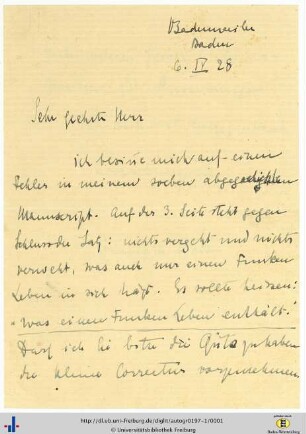 Badenweiler
Baden
6. IV 28
Sehr geehrter Herr
ich besinne mich auf einen
Fehler in meinem soeben abgeschickten
Manuscript. Auf der 3. Seite steht gegen
Schluss der Satz: nichts vergeht und nichts
was auch nur einen Funken
Leben in sich trägt. Es sollte heissen:
"was einen Funken Leben enthält.
Darf ich Sie bitten die Güte zu haben
die kleine Correctur vorzunehmen
http://dl.ub.uni-freiburg.de/diglit/autogr0197-1/0001
© Universitätsbibliothek Freiburg